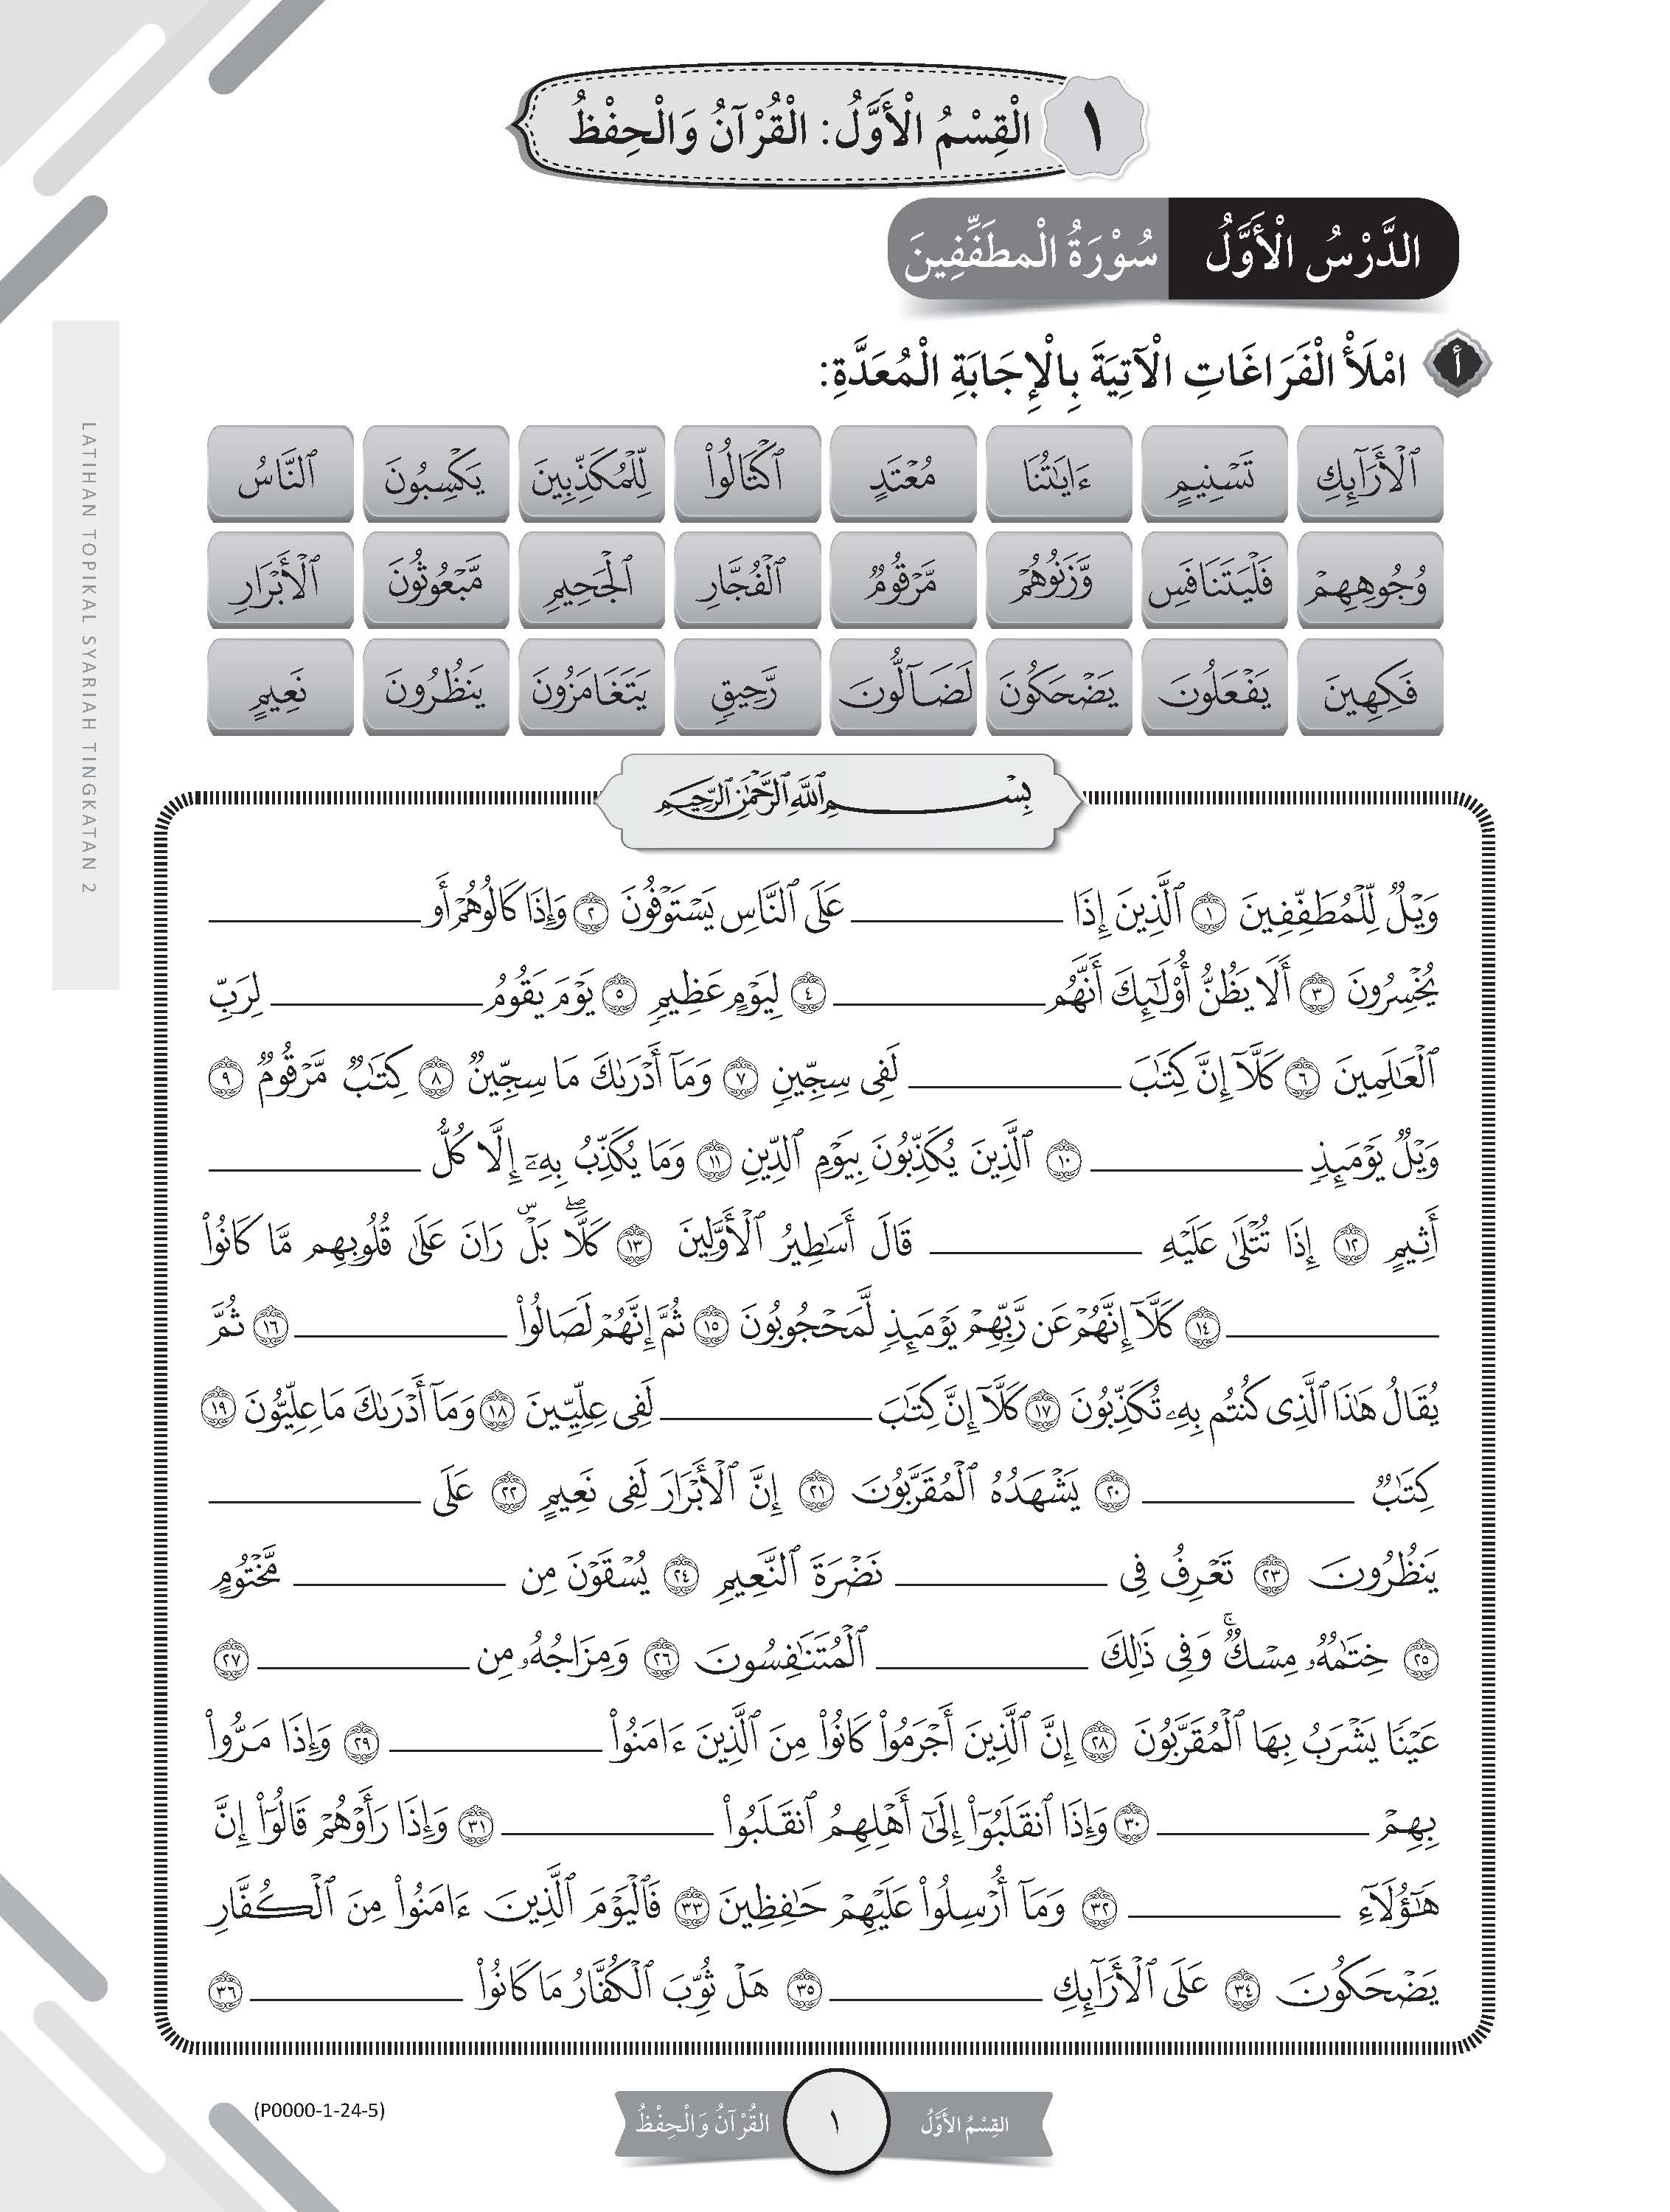 ١ الْقِسْمُ الْأَوَّلُ: الْقُرْآنُ وَالْحِفْظُ
الدَّرْسُ الْأَوَّلُ سُوْرَةُ الْمطَفِّفِينَ
أ امْلَأْ الْفَرَاغَاتِ الْآتِيَةَ بِالْإِجَابَةِ الْمُعَدَّةِ:
ٱلْأَرَآئِكِ تَسْنِيمٍ ءَايَاتُنَا مُعْتَدٍ ٱكْتَالُوا۟ لِّلْمُكَذِّبِينَ يَكْسِبُونَ ٱلنَّاسُ
وُجُوهِهِمْ فَلْيَتَنَافَسِ وَّزَنُوهُمْ مَّرْقُومٌ ٱلْفُجَّارِ ٱلْجَحِيمِ مَّبْعُوثُونَ ٱلْأَبْرَارِ
فَكِهِينَ يَفْعَلُونَ يَضْحَكُونَ لَضَآلُّونَ رَّحِيقٍ يَتَغَامَزُونَ يَنظُرُونَ نَعِيمٍ
بِسْمِ ٱللَّهِ ٱلرَّحْمَٰنِ ٱلرَّحِيمِ
وَيْلٌ لِّلْمُطَفِّفِينَ ١ ٱلَّذِينَ إِذَا ________ عَلَى ٱلنَّاسِ يَسْتَوْفُونَ ٢ وَإِذَا كَالُوهُمْ أَو ________
يُخْسِرُونَ ٣ أَلَا يَظُنُّ أُو۟لَٰٓئِكَ أَنَّهُم ________ ٤ لِيَوْمٍ عَظِيمٍ ٥ يَوْمَ يَقُومُ ________ لِرَبِّ
ٱلْعَٰلَمِينَ ٦ كَلَّآ إِنَّ كِتَٰبَ ________ لَفِى سِجِّينٍ ٧ وَمَآ أَدْرَىٰكَ مَا سِجِّينٌ ٨ كِتَٰبٌ مَّرْقُومٌ ٩
وَيْلٌ يَوْمَئِذٍ ________ ١٠ ٱلَّذِينَ يُكَذِّبُونَ بِيَوْمِ ٱلدِّينِ ١١ وَمَا يُكَذِّبُ بِهِۦٓ إِلَّا كُلُّ ________
أَثِيمٍ ١٢ إِذَا تُتْلَىٰ عَلَيْهِ ________ قَالَ أَسَٰطِيرُ ٱلْأَوَّلِينَ ١٣ كَلَّا ۖ بَلْ ۜ رَانَ عَلَىٰ قُلُوبِهِم مَّا كَانُوا۟
________ ١٤ كَلَّآ إِنَّهُمْ عَن رَّبِّهِمْ يَوْمَئِذٍ لَّمَحْجُوبُونَ ١٥ ثُمَّ إِنَّهُمْ لَصَالُوا۟ ________ ١٦ ثُمَّ
يُقَالُ هَٰذَا ٱلَّذِى كُنتُم بِهِۦ تُكَذِّبُونَ ١٧ كَلَّآ إِنَّ كِتَٰبَ ________ لَفِى عِلِّيِّينَ ١٨ وَمَآ أَدْرَىٰكَ مَا عِلِّيُّونَ ١٩
كِتَٰبٌ ________ ٢٠ يَشْهَدُهُ ٱلْمُقَرَّبُونَ ٢١ إِنَّ ٱلْأَبْرَارَ لَفِى نَعِيمٍ ٢٢ عَلَى ________
يَنظُرُونَ ٢٣ تَعْرِفُ فِى ________ نَضْرَةَ ٱلنَّعِيمِ ٢٤ يُسْقَوْنَ مِن ________ مَّخْتُومٍ
٢٥ خِتَٰمُهُۥ مِسْكٌ ۚ وَفِى ذَٰلِكَ ________ ٱلْمُتَنَٰفِسُونَ ٢٦ وَمِزَاجُهُۥ مِن ________ ٢٧
عَيْنًا يَشْرَبُ بِهَا ٱلْمُقَرَّبُونَ ٢٨ إِنَّ ٱلَّذِينَ أَجْرَمُوا۟ كَانُوا۟ مِنَ ٱلَّذِينَ ءَامَنُوا۟ ________ ٢٩ وَإِذَا مَرُّوا۟
بِهِمْ ________ ٣٠ وَإِذَا ٱنقَلَبُوٓا۟ إِلَىٰٓ أَهْلِهِمُ ٱنقَلَبُوا۟ ________ ٣١ وَإِذَا رَأَوْهُمْ قَالُوٓا۟ إِنَّ
هَٰٓؤُلَآءِ ________ ٣٢ وَمَآ أُرْسِلُوا۟ عَلَيْهِمْ حَٰفِظِينَ ٣٣ فَٱلْيَوْمَ ٱلَّذِينَ ءَامَنُوا۟ مِنَ ٱلْكُفَّارِ
يَضْحَكُونَ ٣٤ عَلَى ٱلْأَرَآئِكِ ________ ٣٥ هَلْ ثُوِّبَ ٱلْكُفَّارُ مَا كَانُوا۟ ________ ٣٦
LATIHAN TOPIKAL SYARIAH TINGKATAN 2
القِسْمُ الأَوَّلُ ١ القُرْآنُ وَالْحِفْظُ
(P0000-1-24-5)